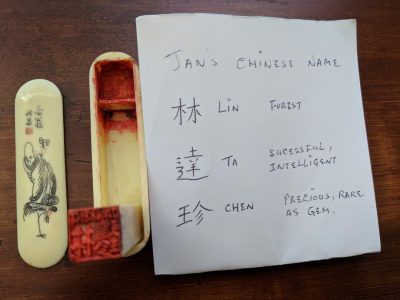 JAN'S CHINESE NAME
林 LIN FOREST
達 TA SUCESSFUL,
INTELLIGENT
珍 CHEN PRECIOUS, RARE
AS GEM.